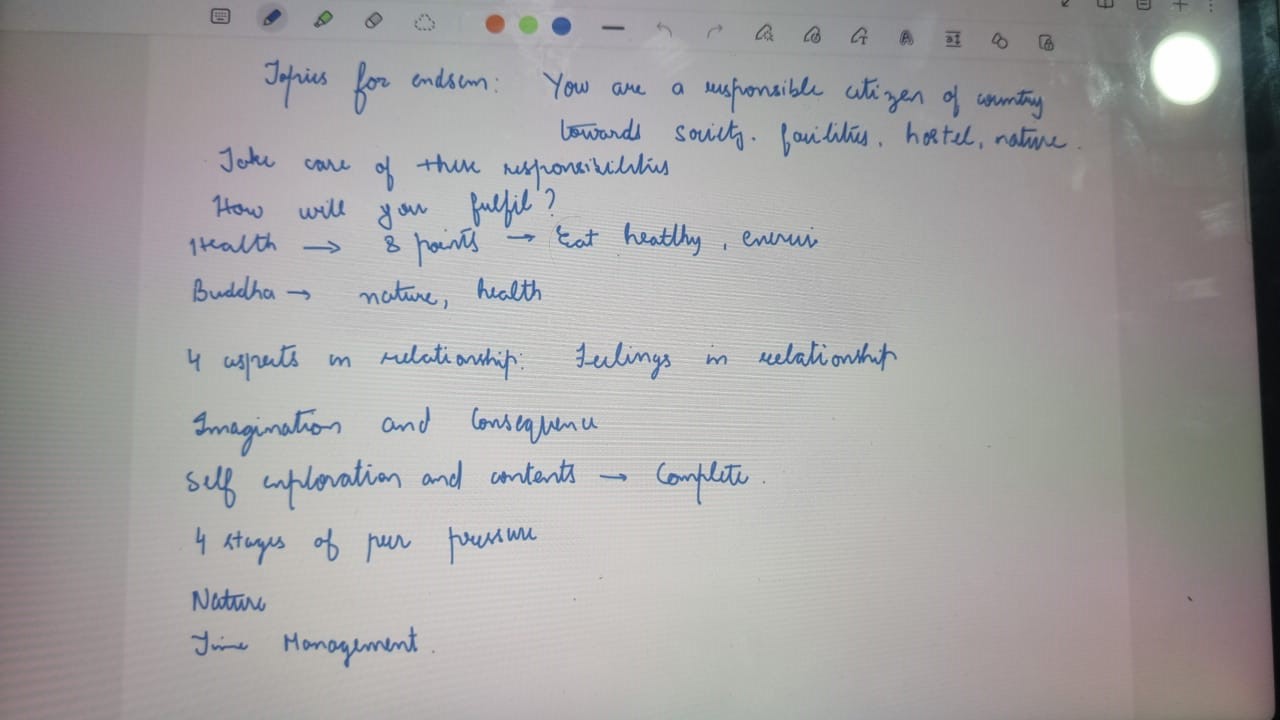 Topics for endsem: You are a responsible citizen of country
towards society. facilities, hostel, nature.
Take care of these responsibilities
How will you fulfil?
Health → 8 points → Eat healthy, exercise
Buddha → nature, health
4 aspects in relationship: Feelings in relationship
Imagination and Consequence
Self exploration and contents → Complete.
4 stages of peer pressure
Nature
Time Management.